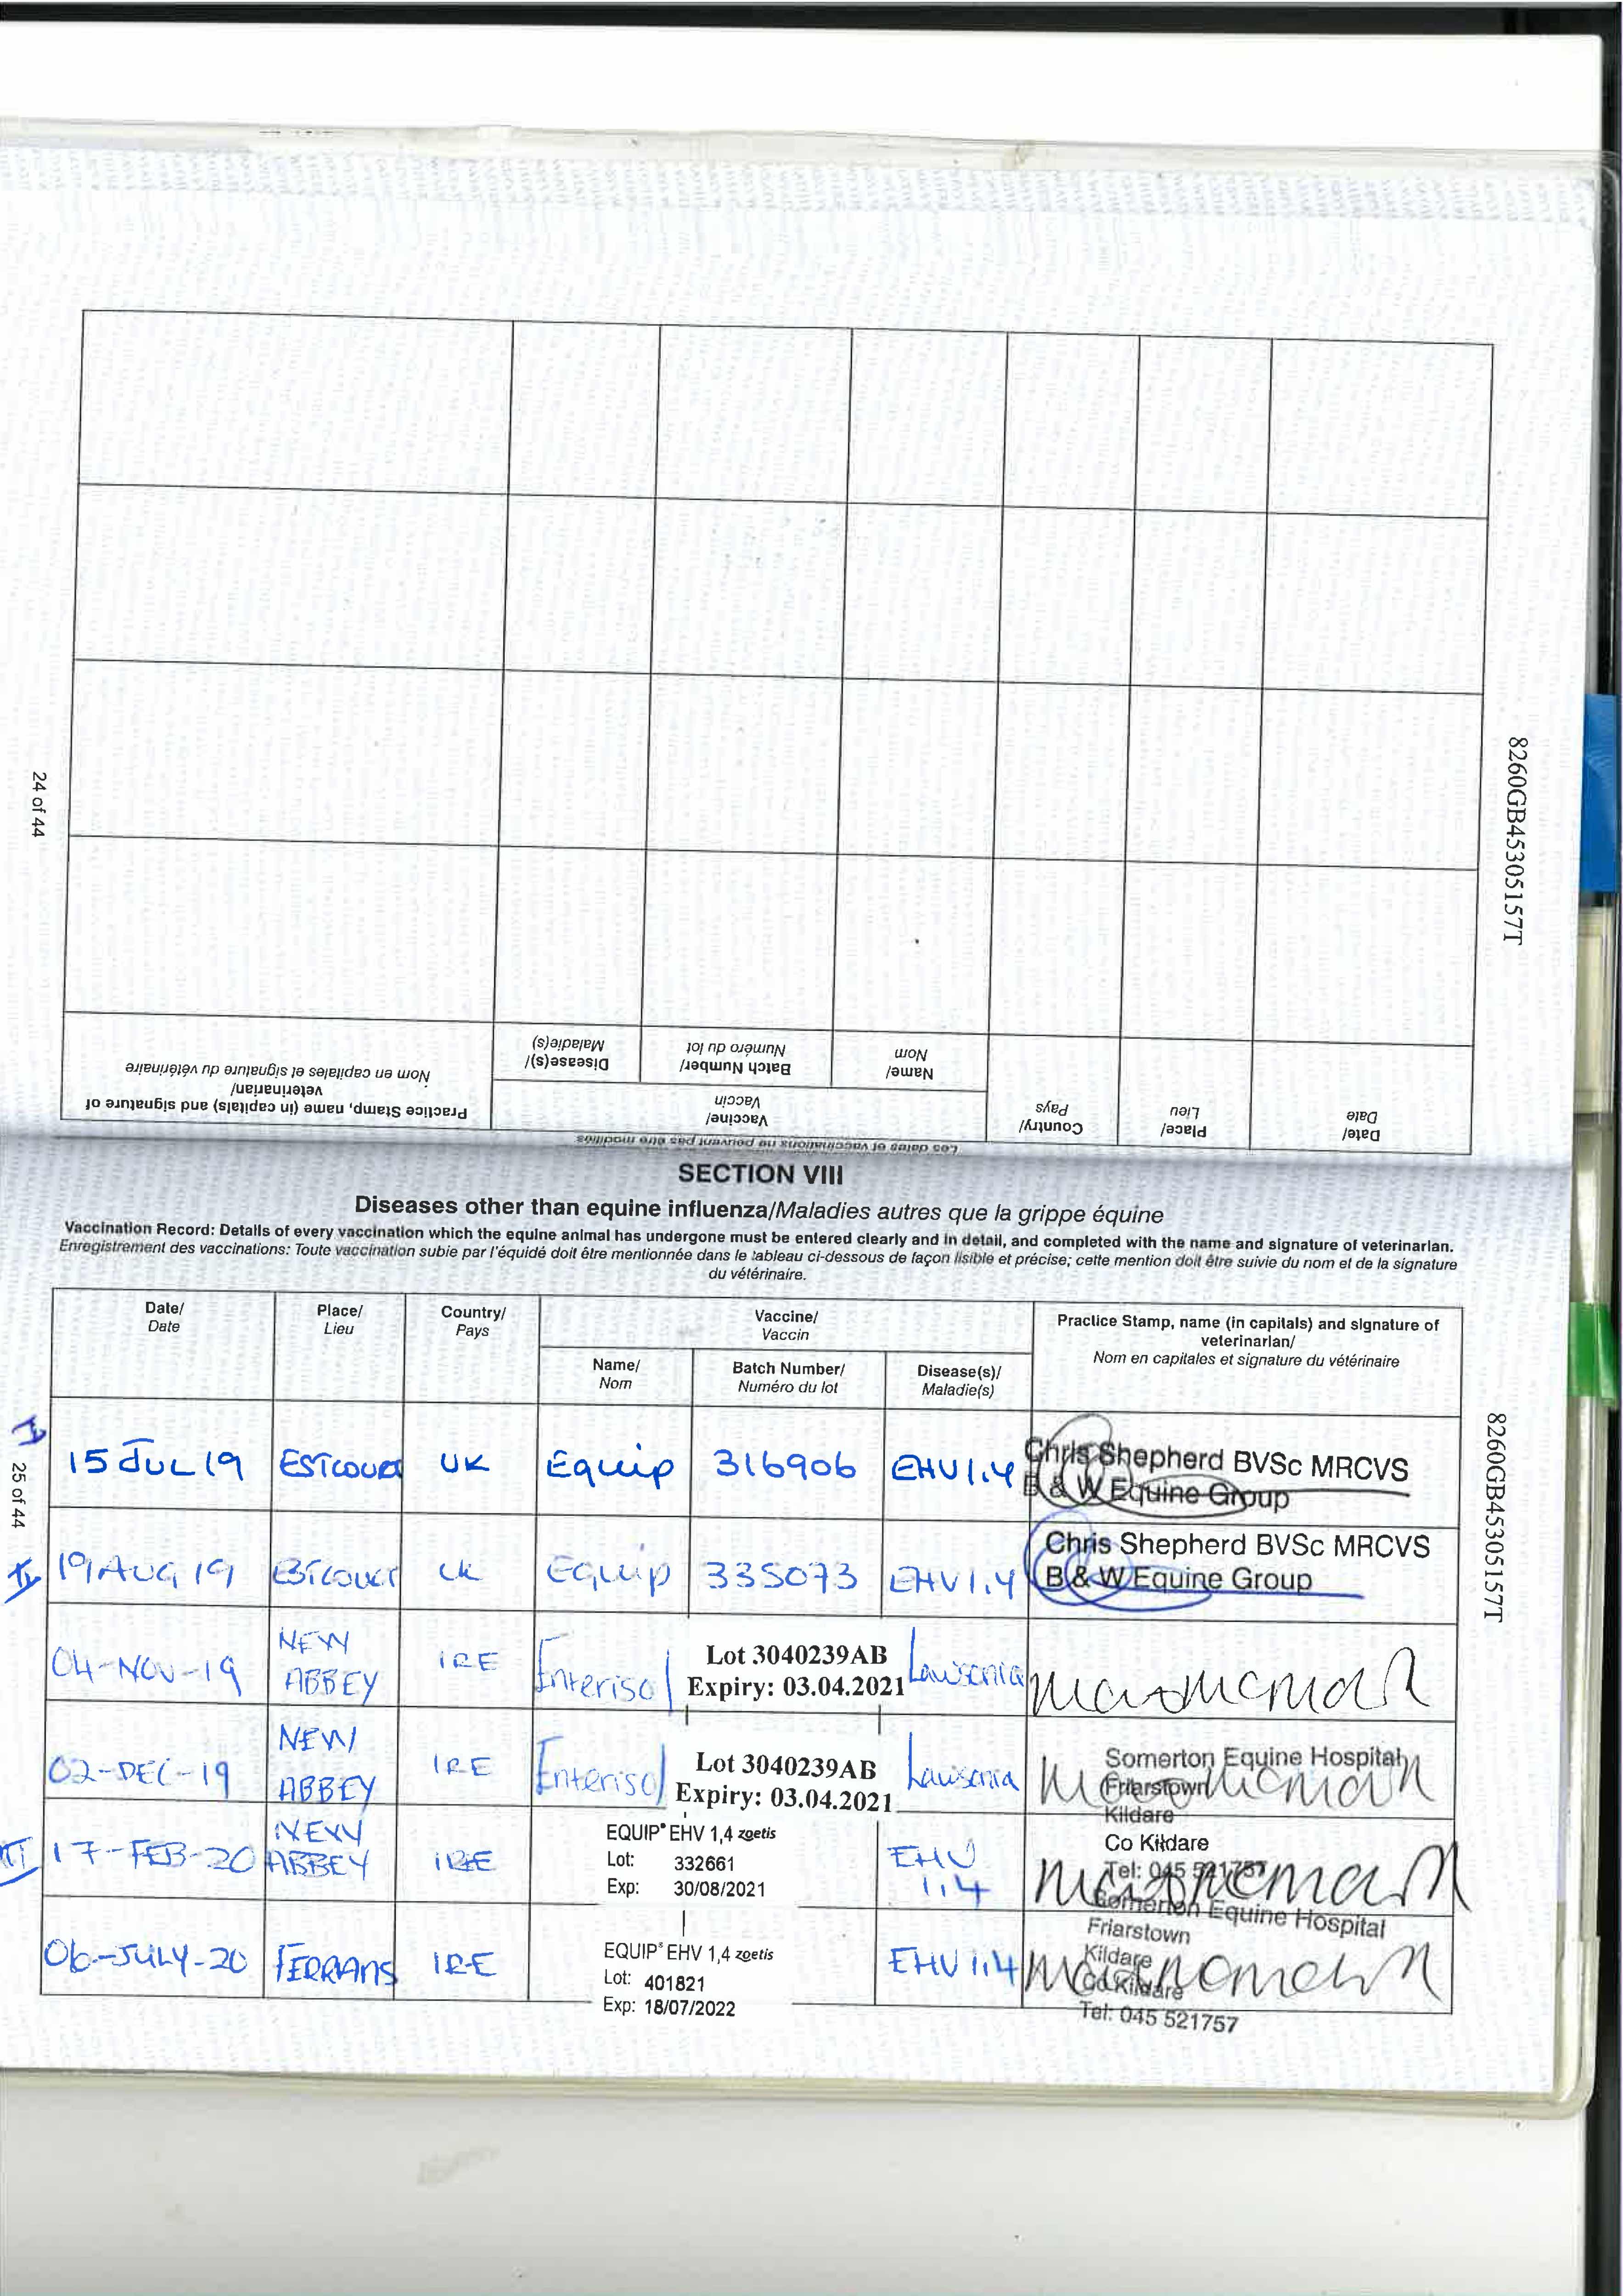 24 of 44
8260GB45305157T
Date/
Date
Place/
Lieu
Country/
Pays
Vaccine/
Vaccin
Name/
Nom
Batch Number/
Numéro du lot
Disease(s)/
Maladie(s)
Practice Stamp, name (in capitals) and signature of
veterinarian/
Nom en capitales et signature du vétérinaire
Les dates et vaccinations ne peuvent pas être modifiés
SECTION VIII
Diseases other than equine influenza/Maladies autres que la grippe équine
Vaccination Record: Details of every vaccination which the equine animal has undergone must be entered clearly and in detail, and completed with the name and signature of veterinarian.
Enregistrement des vaccinations: Toute vaccination subie par l'équidé doit être mentionnée dans le tableau ci-dessous de façon lisible et précise; cette mention doit être suivie du nom et de la signature
du vétérinaire.
Date/
Date
Place/
Lieu
Country/
Pays
Vaccine/
Vaccin
Name/
Nom
Batch Number/
Numéro du lot
Disease(s)/
Maladie(s)
Practice Stamp, name (in capitals) and signature of
veterinarian/
Nom en capitales et signature du vétérinaire
25 of 44
8260GB45305157T
15 JUL 19 ESTCOURT UK Equip 316906 EHV1.4
Chris Shepherd BVSc MRCVS
B & W Equine Group
19 AUG 19 ESTCOURT UK Equip 335073 EHV1.4
Chris Shepherd BVSc MRCVS
B & W Equine Group
04-NOV-19
NEW
ABBEY
IRE Enterisol
Lot 3040239AB
Expiry: 03.04.2021
Lawsonia
02-DEC-19
NEW
ABBEY
IRE Enterisol
Lot 3040239AB
Expiry: 03.04.2021
Lawsonia
Somerton Equine Hospital
Friarstown
Kildare
Co Kildare
Tel: 045 521757
17-FEB-20
NEW
ABBEY
IRE
EQUIP® EHV 1,4 zoetis
Lot: 332661
Exp: 30/08/2021
EHV
1,4
06-JULY-20 FERRANS IRE
EQUIP® EHV 1,4 zoetis
Lot: 401821
Exp: 18/07/2022
EHV 1,4
Somerton Equine Hospital
Friarstown
Kildare
Co Kildare
Tel: 045 521757